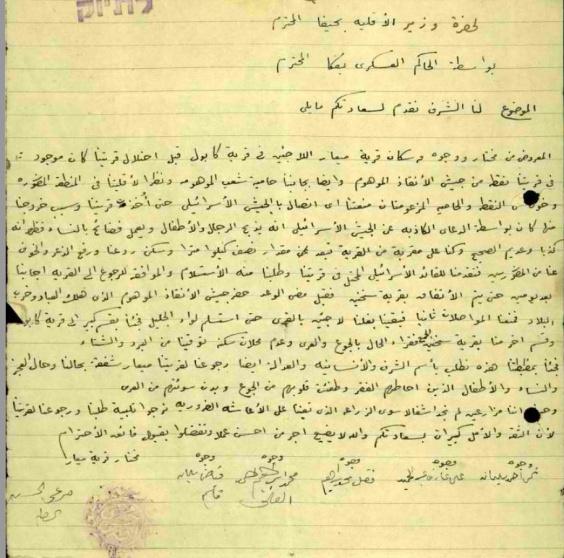 לתיוק
لحضرة وزير الأقليه بحيفا المحترم
بواسطة الحاكم العسكري بعكا المحترم
الموضوع لنا الشرف نقدم لسعادتكم مايلي
المعروض من مختار ووجوه وسكان قرية ميعار اللاجئين في قرية كابول قبل احتلال قريتنا كان موجود
في قريتنا نقط من جيش الأنقاذ الموهوم وايضا بجانبنا حامية شعب الموهومه ونظرا لأقليتنا في المنطقة
النقط والحاميه المزعومتان منعتنا اي اتصال بالجيش الأسرائيلي حتى أخذ قريتنا وسبب خروجنا
منها كان بواسطة الدعاى الكاذبه عن الجيش الأسرائيلي انه يذبح الرجال والأطفال ويعمل فضائح بالنساء فظهر انه
كذبا وعديم الصحيح وكنا على مقربة من القرية تبعد عن مقدار نصف كيلو مترا وسكن روعنا وزوح الذعر والخوف
عنا من فتقدمنا للقائد الأسرائيلي المحتل في قريتنا وطلبنا منه الأستسلام والموافقه للرجوع الى القريه اجابنا
بعد يومين حتى يتم الأتفاق بقرية سخنين فقبل مضى الوعد حضر جيش الأنقاذ الموهوم الذي هلك العباد وخرب
البلاد فمنعنا المواصلات ثانيا فبقينا بقلنا لاجئين بالقرى حتى استسلم لواء الجليل فجئنا بقسم كبير الى قرية كابول
وقسم اخر منا بقرية سخنين فقراء الحال بالجوع والعرى وعدم محلات سكنه توقينا من البرد والشتاء
فجئنا بمضبطتنا هذه نطلب بأسم الشرف والأنسانيه والعداله ايضا رجوعنا لقريتنا ميعار شفقة بحالنا وحال العجز
والنساء والأطفال الذين احاطهم الفقر وطفئت قلوبهم من الجوع وبدن سوئهم من العرى
اننا مزارعين لم نجد اشغالا سوى الزراعه الذي تعيننا على الأعاشه الضروريه نرجوا تلبية طلبنا ورجوعنا لقريتنا
لأن الثقه والأمل كبيران بسعادتكم والله لا يضيع اجر من احسن عملا وتفضلوا بقبول فائق الأحترام
وجوه وجوه وجوه وجوه وجوه مختار قرية ميعار